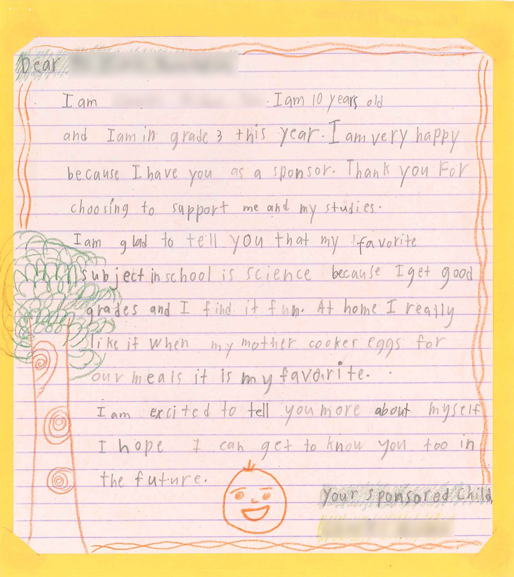 Dear
I am I am 10 years old
and I am in grade 3 this year. I am very happy
because I have you as a sponsor. Thank you For
choosing to support me and my studies.
I am glad to tell you that my favorite
subject in school is science because I get good
grades and I find it fun. At home I really
like it when my mother cooker eggs for
our meals it is my favorite.
I am excited to tell you more about myself
I hope I can get to know you too in
the future.
Your sponsored child,